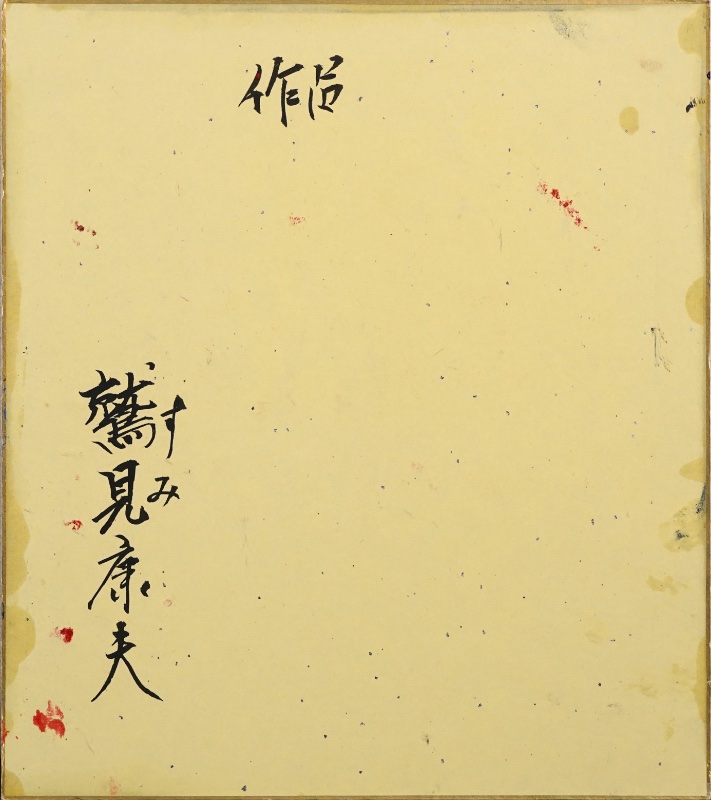 作品
鷲見康夫
すみ